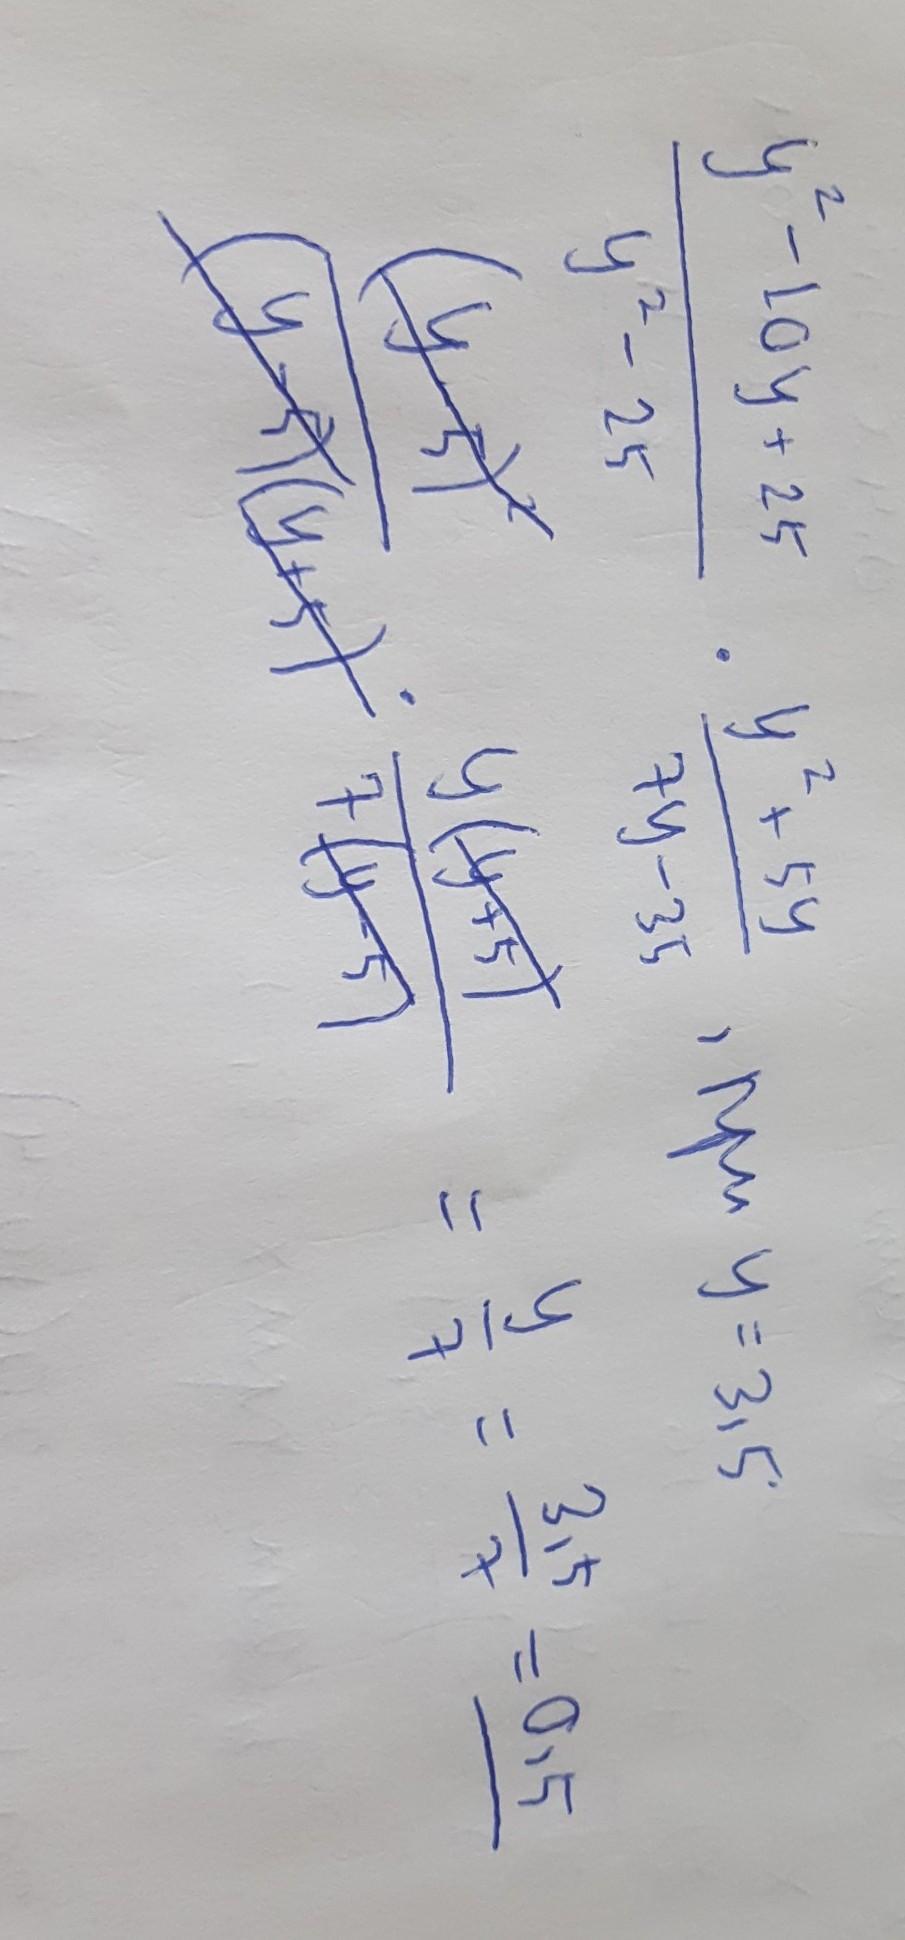 y² - 10y + 25 / y² - 25 · y² + 5y / 7y - 35 , при y = 3,5
(y - 5)² / (y - 5)(y + 5) · y(y + 5) / 7(y - 5) = y / 7 = 3,5 / 7 = 0,5